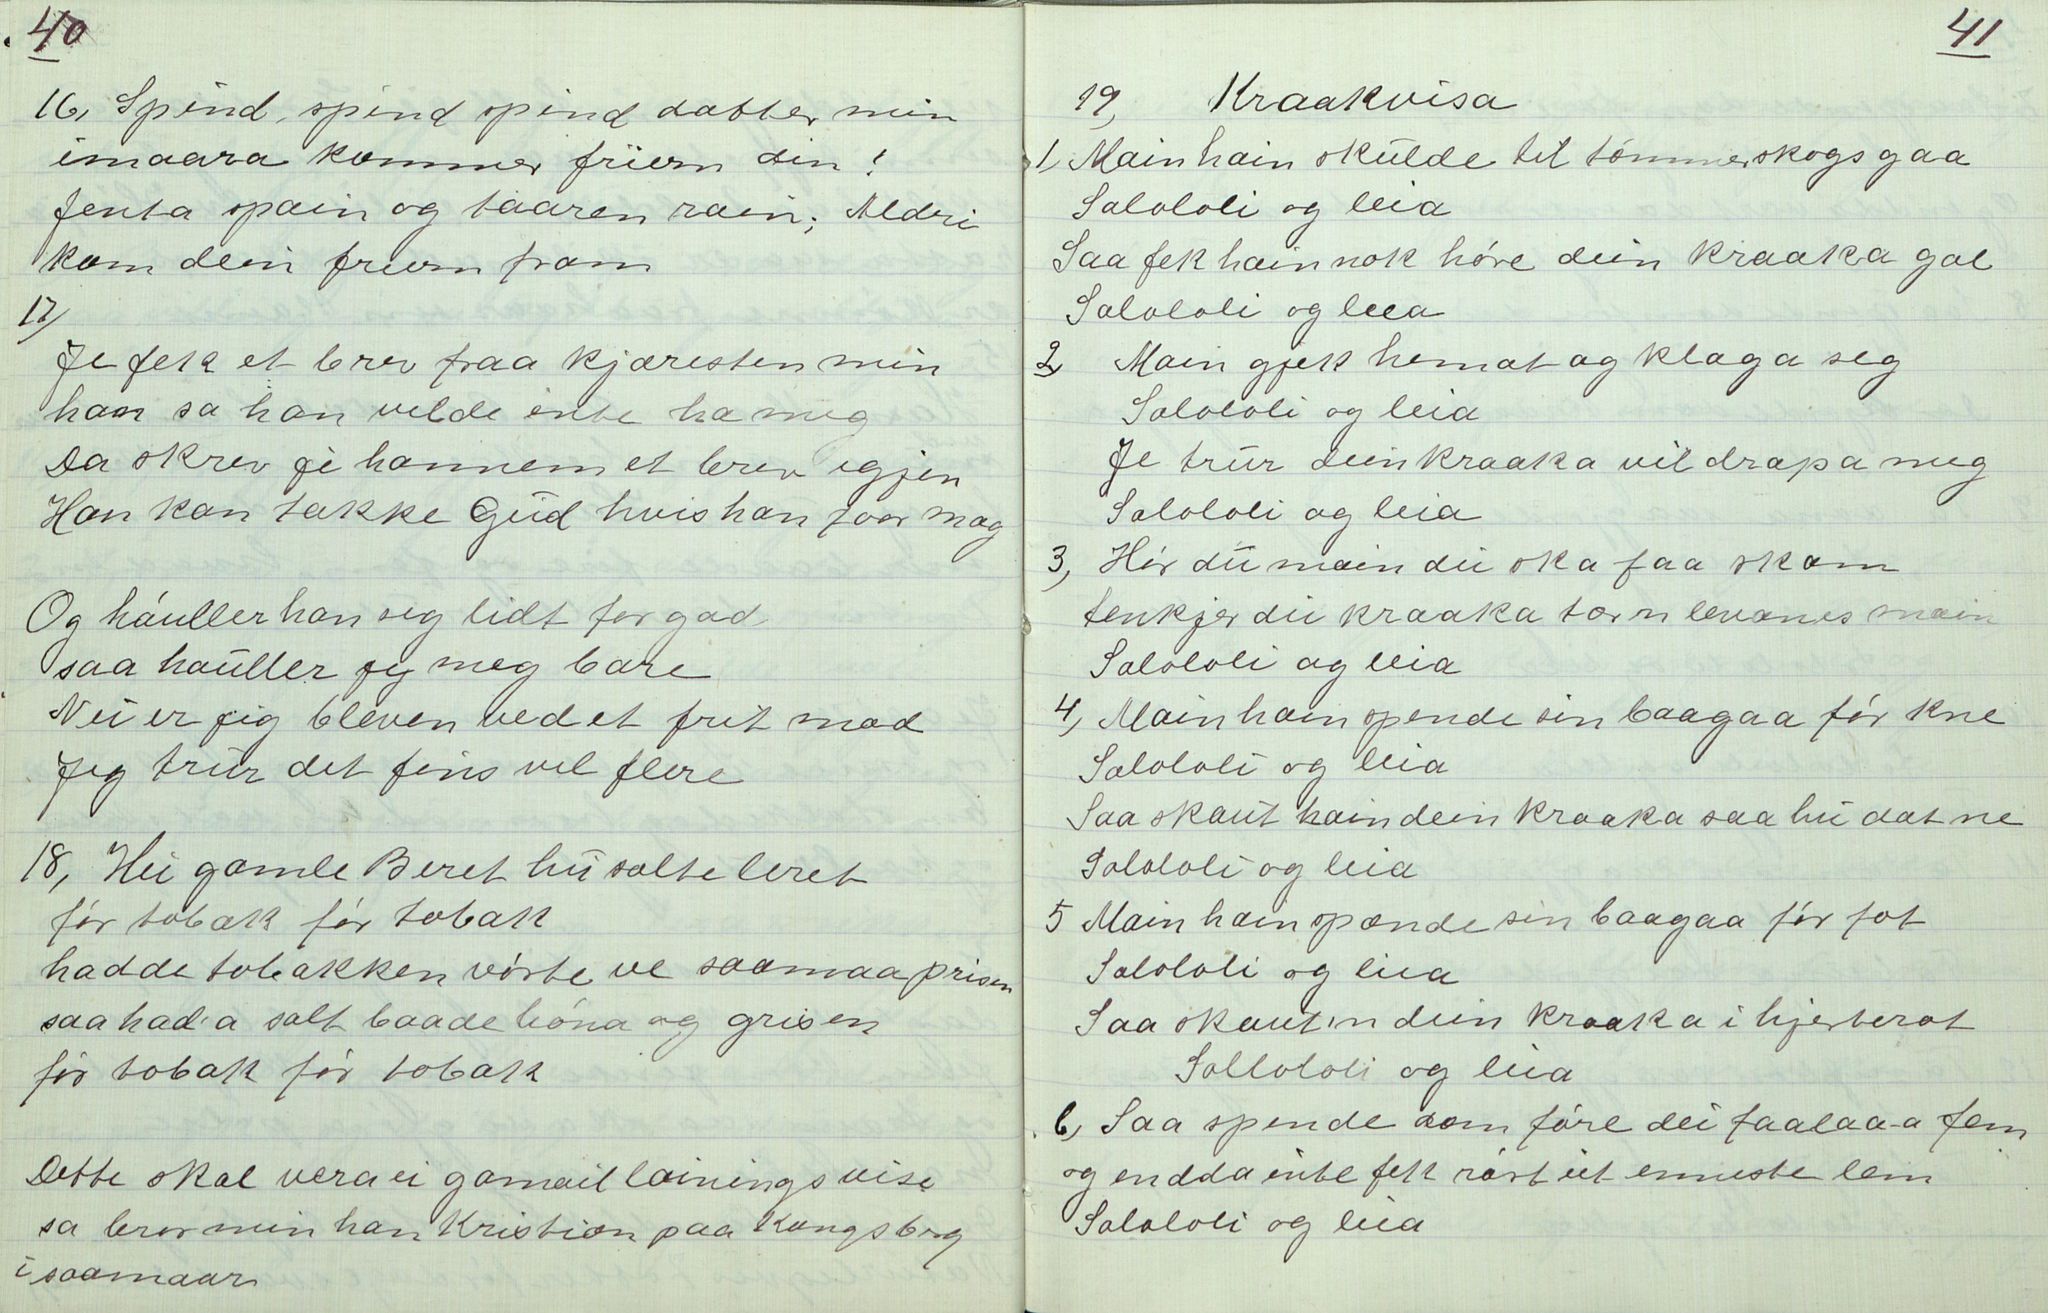 40
16, Spind, spind spind datter min
imaara kommer friern din!
Jenta spain og taaren rain; Aldri
kom dein friern fram
17,
Je fek et brev fraa kjæresten min
han sa han vilde inte ha meg
Da skrev je hannem et brev igjen
Han kan takke Gud hvis han faar mæg
Og háuller han seg lidt for god
saa hauller jeg meg bare
Nei er jeg bleven ved et frit mod
Jeg trur det fins vel flere
18, Hu gamle Beret hu salte leret
fór tobak fór tobak
hadde tobakken vórte ve saamaa prisen
saa had'a salt baade hóna og grisen
fór tobak fór tobak
Dette skal vera ei gamail lainingsvise
sa bror min han Kristian paa Kongsberg
i saamaar
41
19, Kraakvisa
1, Main hain skulde til tómmerskogs gaa
Salololi og leia
Saa fek hain nok hóre dein kraaka gol
Salololi og leia
2, Main gjek hemat og klaga seg
Salololi og leia
Je trur dein kraaka vil drapa meg
Salololi og leia
3, Hór du main du ska faa skam
tenkjer du kraaka tar n levanes main
Salololi og leia
4, Main hain spende sin baagaa fór kne
Salololi og leia
Saa skaut hain dein kraaka saa hu dat ne
Salololi og leia
5 Main hain spænde sin baagaa fór fot
Salololi og leia
Saa skaut'n dein kraaka i hjerterot
Sallololi og leia
6, Saa spende dom fóre dei faalaa-a fem
og endda inte fek rórt ut enneste lem
Salololi og leia